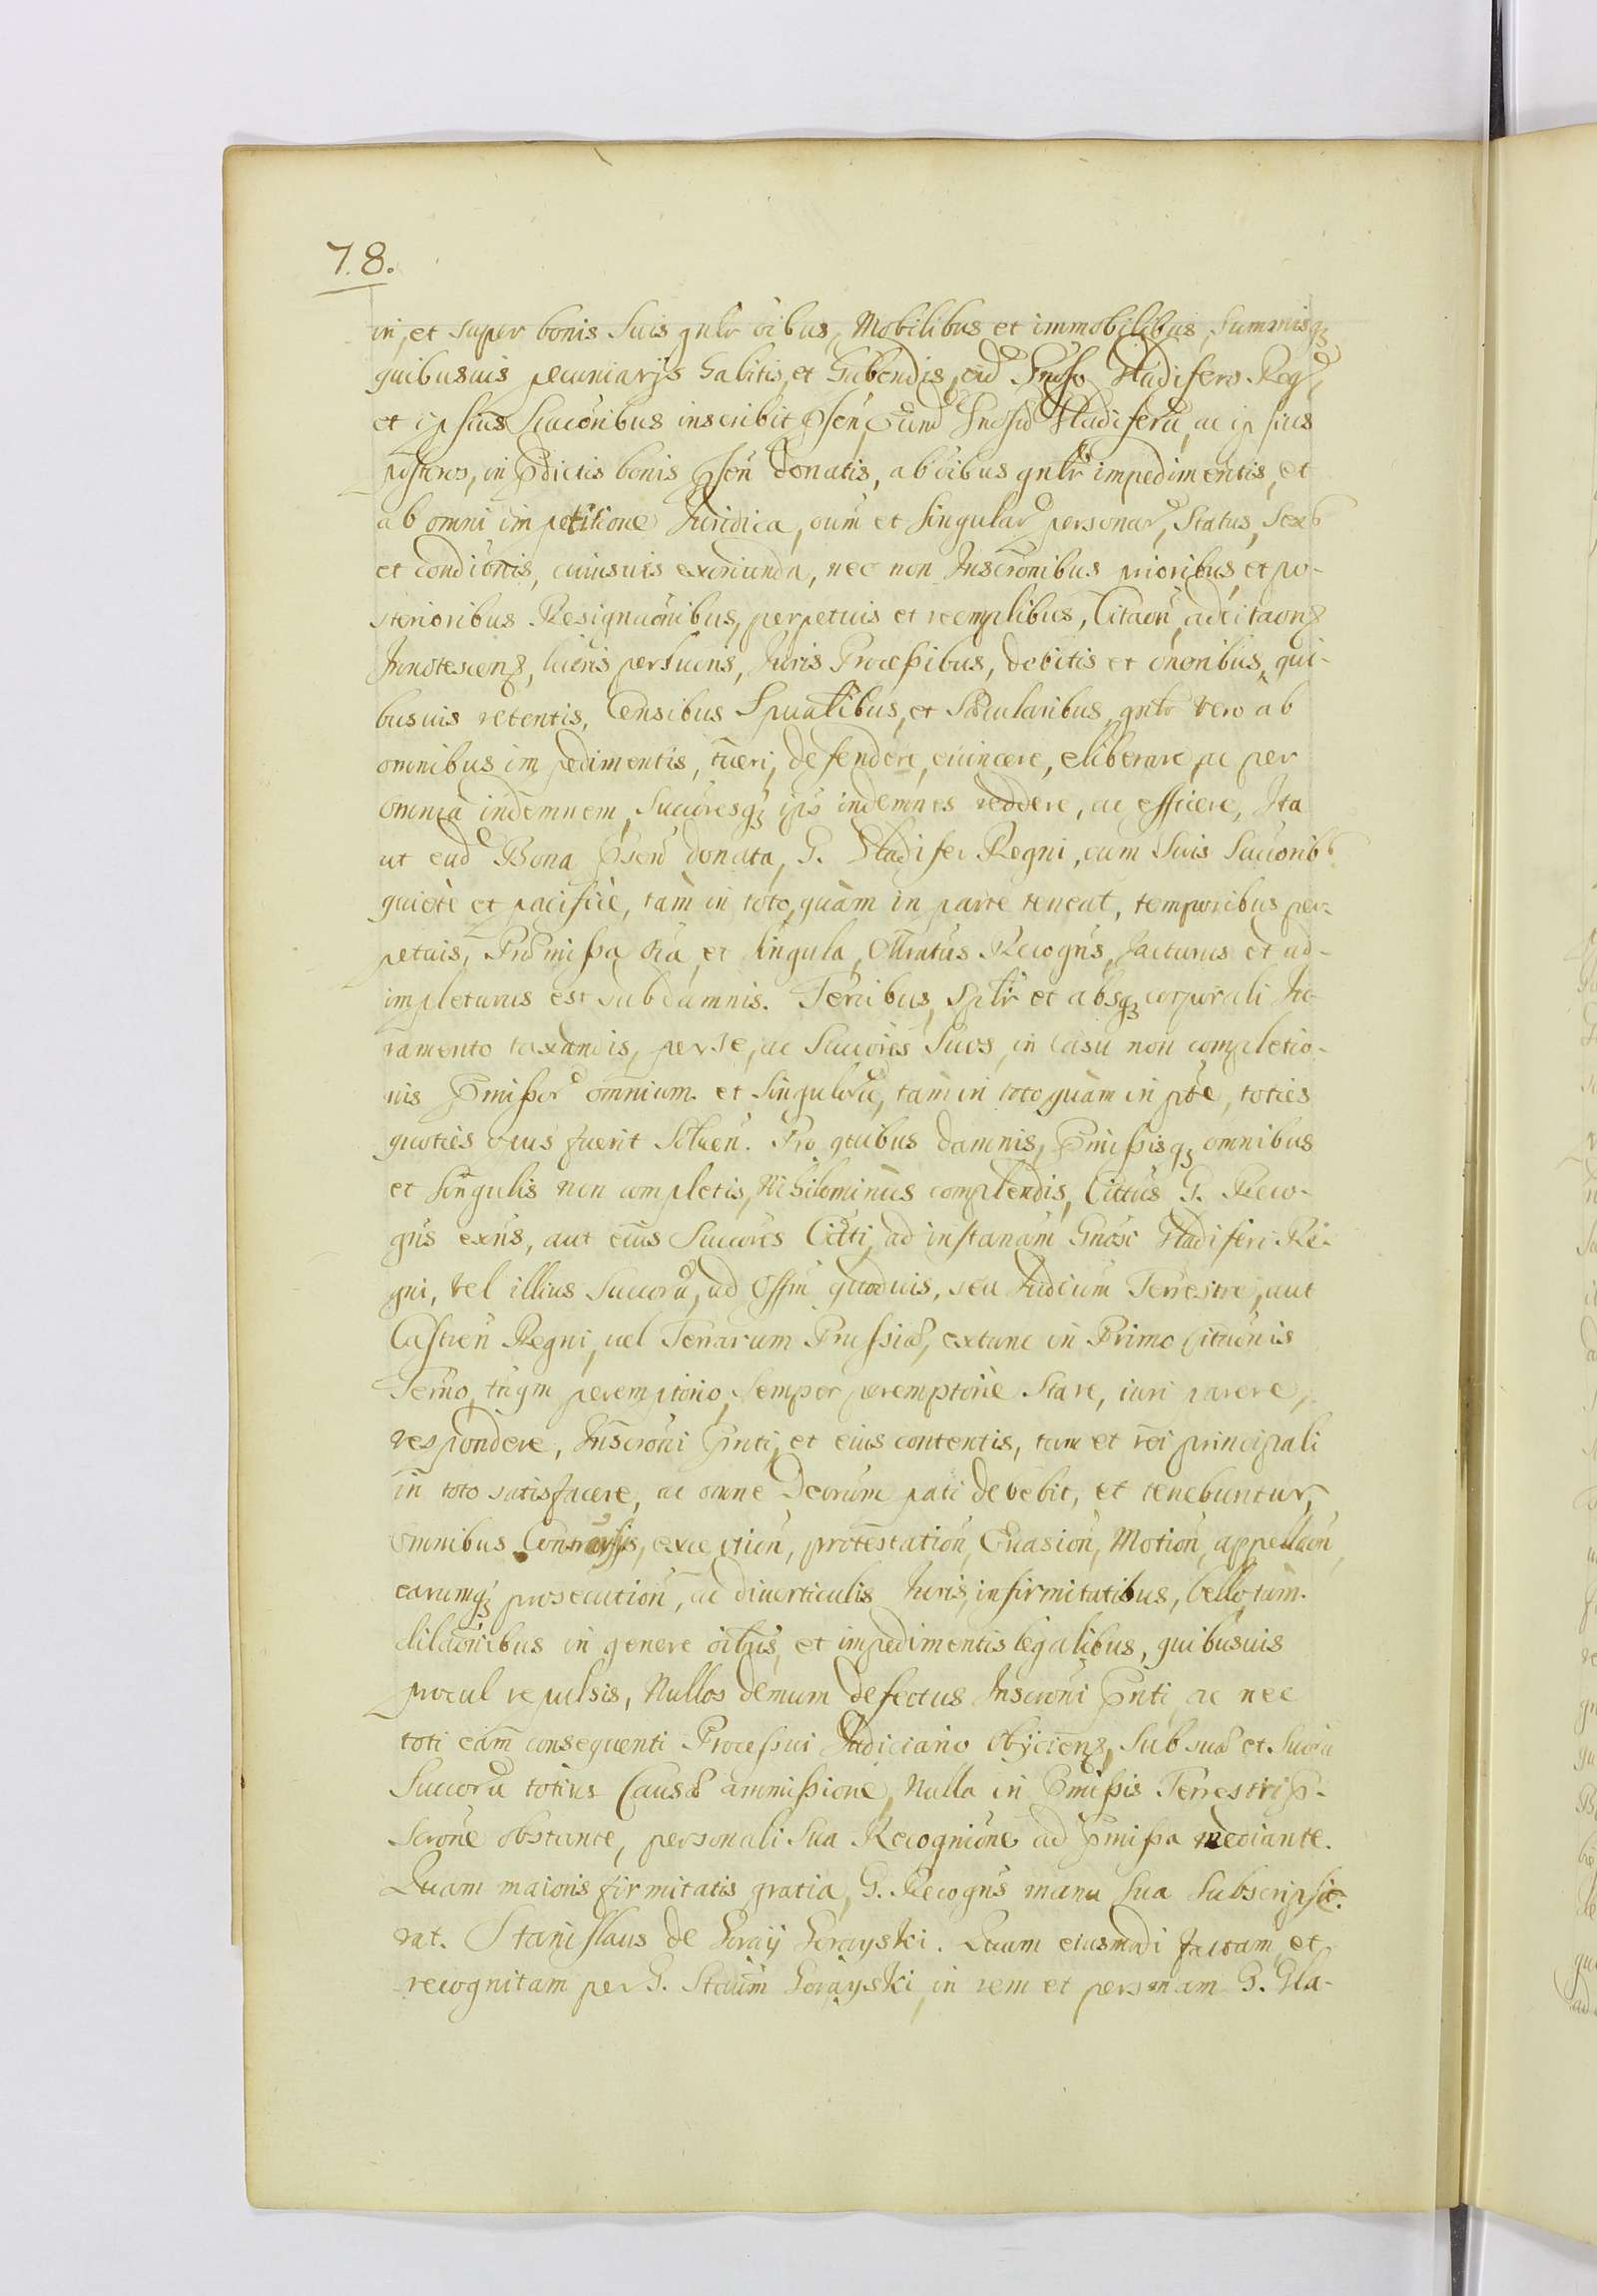 78.
in, et super bonis suis gnlr oibus, Mobilibus et immobilibus, Summisq3
quibusuis pecuniarijs habitis, et habendis, eid Gnoso Gladifero Regni
et ipsius Succoribus inscribit Psen Eund Gnosu Gladiferu, ac ipsius
posteros, in Pdictis bonis Psen donatis, ab oibus gnlr impedimentis, et
ab omni impetitione Juridica, oum et singular personar, Status, Sex9
et conditonis, cuiusuis exoriunda, nec non Inscronibus prioribus et po-
sterioribus Resignaonibus, perpetuis et reemplibus, Citaon, adcitaon3
Innotescen3, lucris perlucris, Juris Processibus, debitis et oneribus, qui-
busuis retentis, Censibus Spualibus, et Saecularibus, gnlr vero ab
omnibus impedimentis, tueri, defendere, euincere, eliberare, ac per
omnia indemnem, Succoresq3 ips indemnes reddere, ac efficere, Ita
ut ead Bona Psen donata, G. Gladifer Regni, cum Suis Succorib9
quietè et pacificè, tàm in toto, quàm in parte teneat, temporibus per-
petuis, Praemissa oia et singula, Obratus Recogns, facturus et ad-
impleturus est sub damnis. Terribus, splr et absq3 corporali Ju-
ramento taxandis, per se, ac Succores Suos, in casu non completio-
nis Pmissor omnium et Singuloru, tàm in toto quàm in pte, toties
quoties opus fuerit Soluen. Pro quibus damnis, Pmissisq3 omnibus
et singulis non completis, Nihilominùs complendis, Cittus G. Reco-
gns exns, aut eius Succores Citti, ad instanam Gnosi Gladiferi Re-
gni, vel illius Succoru, ad Offm quoduis, seu Judicium Terrestre, aut
Castren Regni, uel Terrarum Prussiae, extunc in Primo Cittionis
Termo, tnqm peremptorio, Semper peremptoriè Stare, iuri parere,
respondere, Inscroni Pnti, et eius contentis, tam et rei principali
in toto satisfacere, ac omne Decretum pati debebit, et tenebuntur,
omnibus Contrarijs, exception, protestation, Euasion, Motion, appellaon,
earumq3 prosecution, ac diuerticulis Juris, infirmitatibus, bello, tàm
dilaonibus in genere oibus, et impedimentis legalibus, quibusuis
procul repulsis, Nullos demum defectus Inscroni Pnti, ac nec
toti eam consequenti Processui Judiciario obijcien3, Sub sua et Suoru
Succoru totius Causae ammissione, Nulla in Pmissis Terrestri P-
scrone obstante, personali Sua Recognione ad Pmissa mediante.
Quam maioris firmitatis gratia, G. Recogns manu Sua Subscripse-
rat. Stanislaus de Goraÿ Gorayski. Quam eiusmodi factam et
recognitam per G. Staum Gorayski, in rem et personam G. Gla-